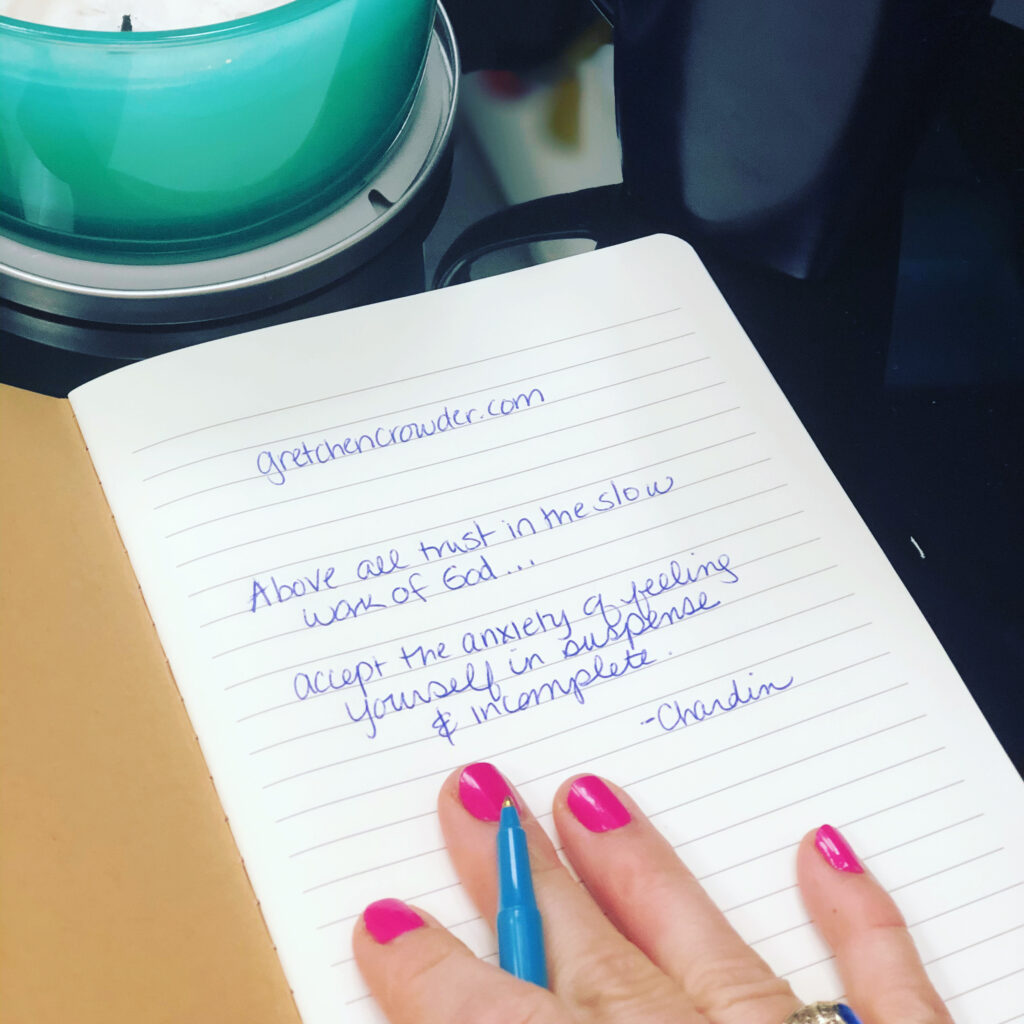 gretchencrowder.com
Above all trust in the slow
work of God...
accept the anxiety of feeling
yourself in suspense
& incomplete.
-Chardin